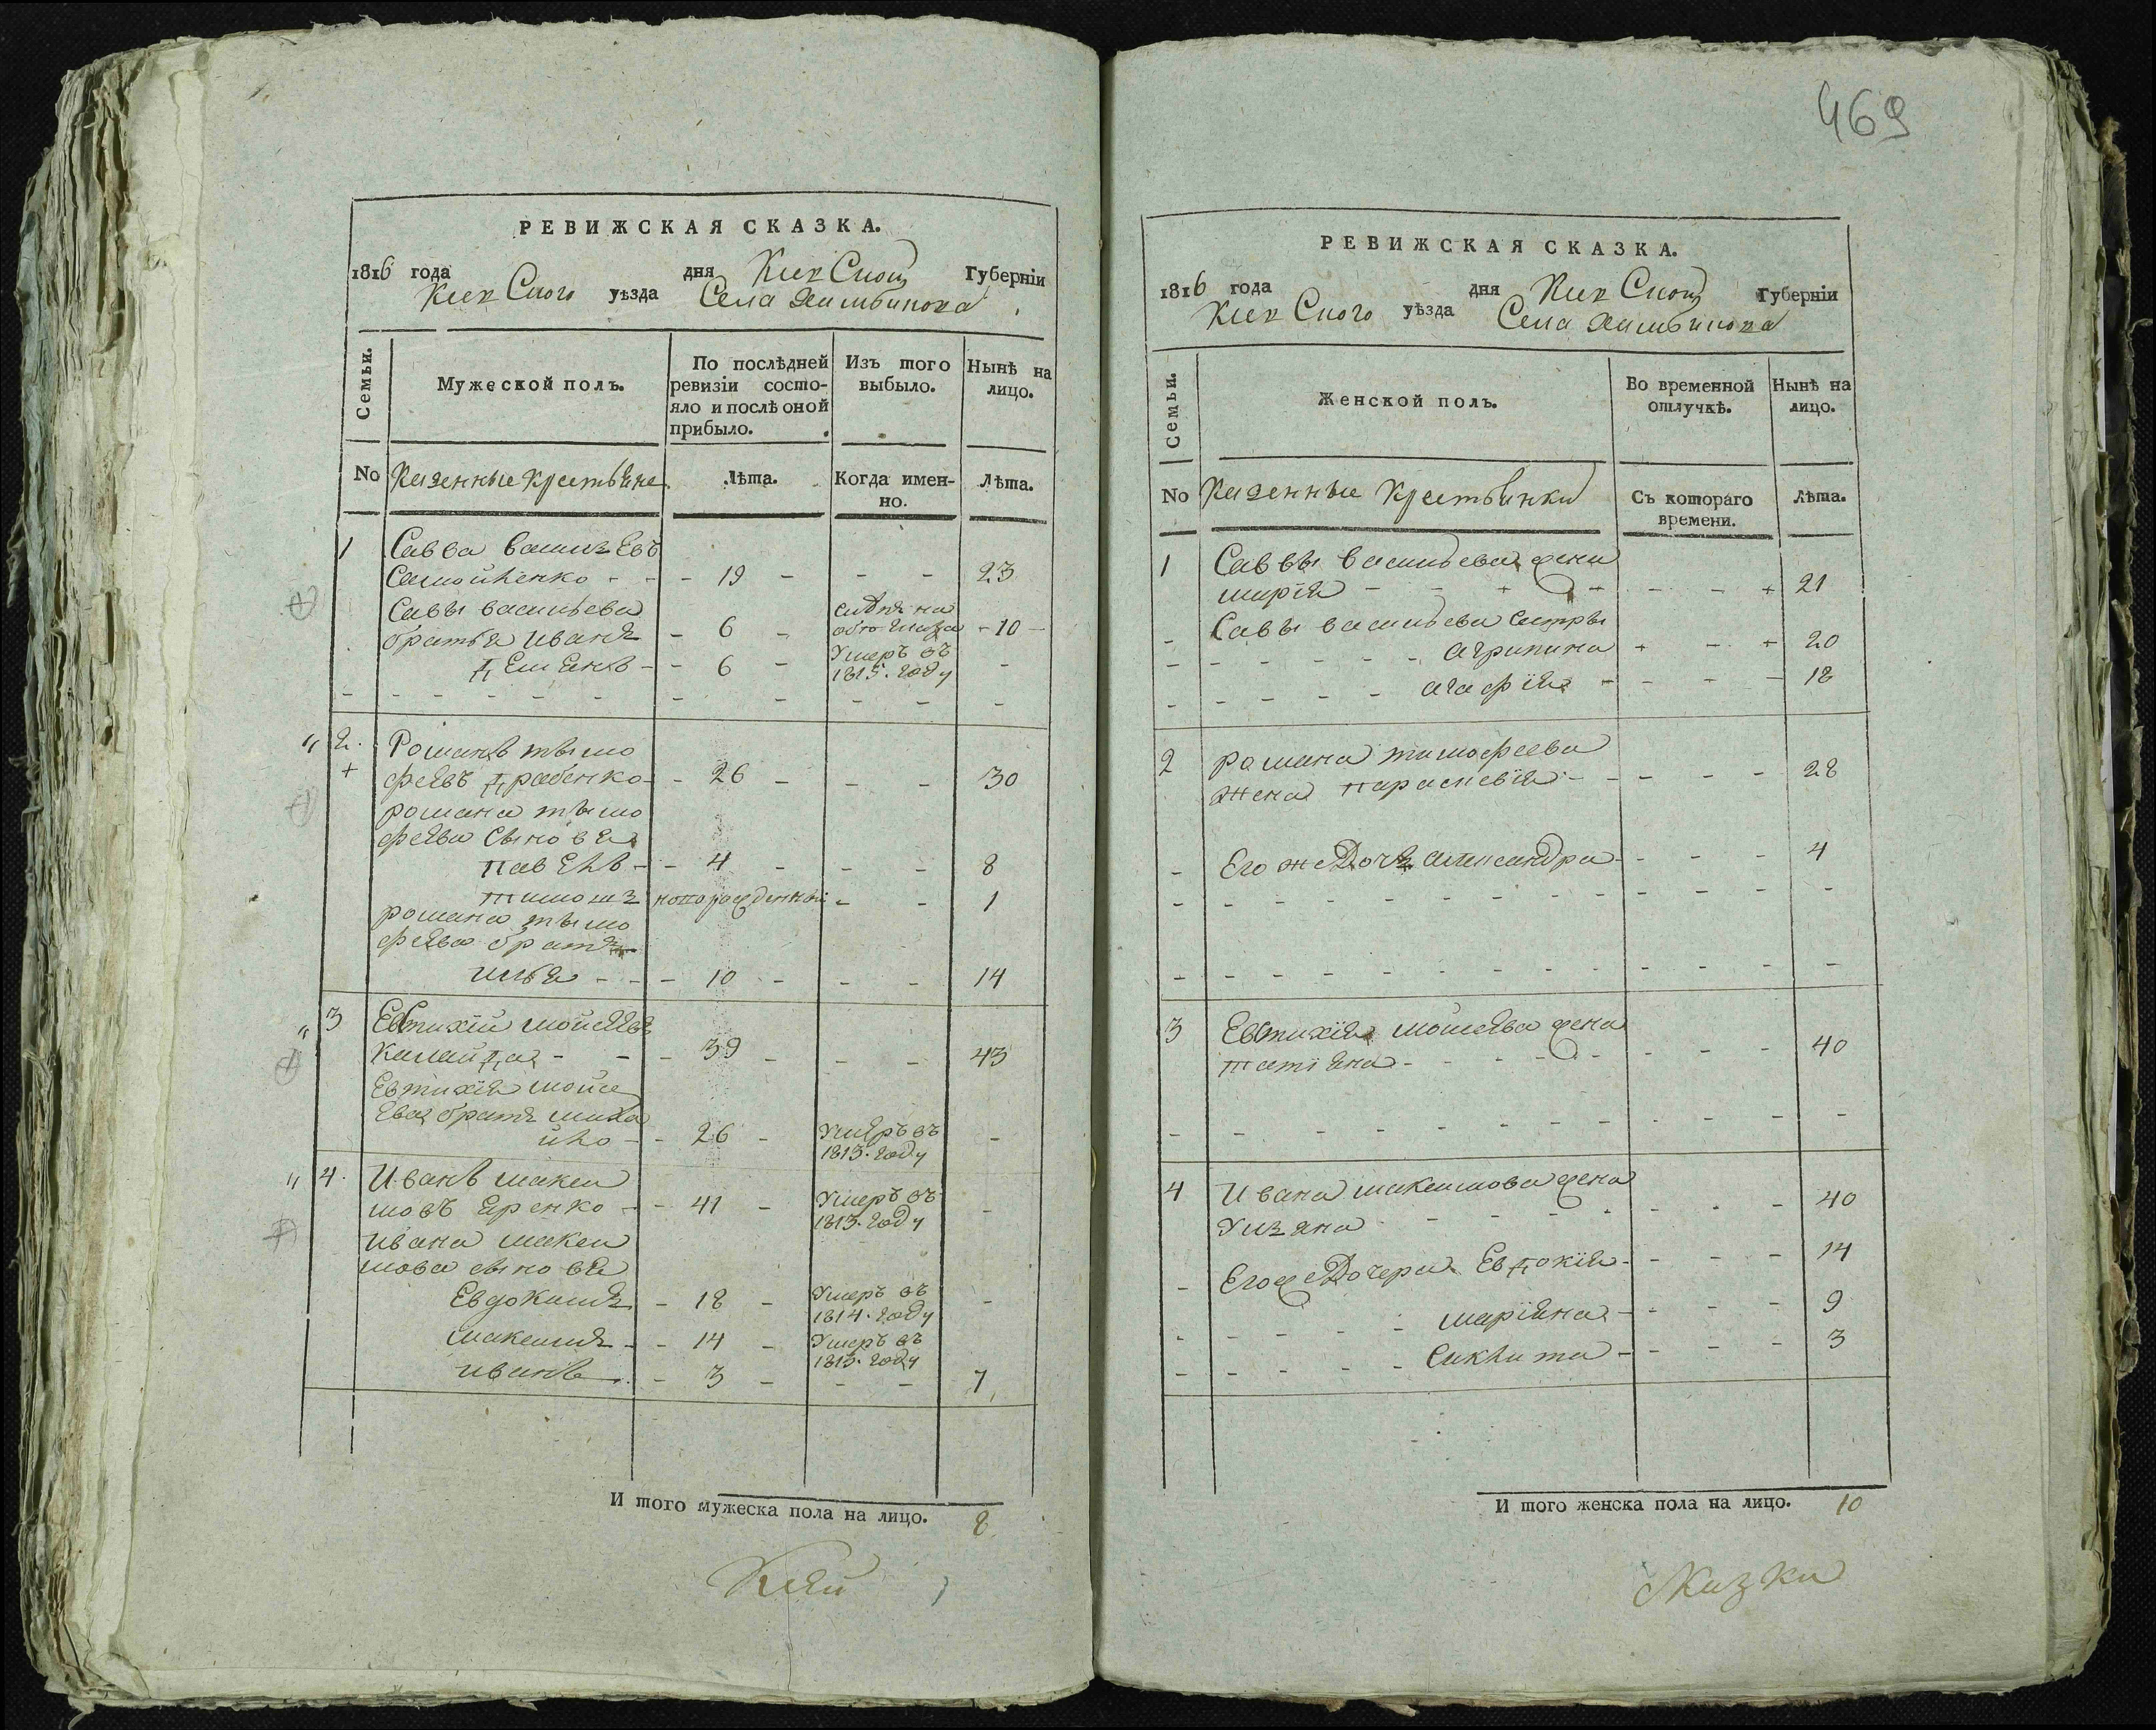 РЕВИЖСКАЯ СКАЗКА.
1816 года дня Губерніи
уѣзда Села
Семьи.
Мужеской полъ.
По послѣдней ревизіи состо-
яло и послѣ оной
прибыло.
Изъ того
выбыло.
Нынѣ на
лицо.
No Казенные крестьяне Лѣта. Когда имен-
но. Лѣта.
1 Савва
Самойленко - - 19 - - - 23
Савы васильева
братья Иванъ - 6 - - 10 -
Емельянъ - 6 - Умеръ въ
1815. году -
2. Романъ тымо
фѣевъ - 26 - - - 30
романа тымо
фѣева сыновья
павелъ - - 4 - - - 8
тимошъ новорожденной - - 1
романа тымо
фѣева братъ
илья - - - 10 - - - 14
3 Евтихій мойсѣевъ
- - - 39 - - - 43
Евтихія мойсе
ева братъ миха
йло - - 26 - Умѣръ въ
1813. году -
4. Иванъ макси
мовъ Яренко - - 41 - Умеръ въ
1813. году -
ивана макси
мова сыновья
Евдокимъ - 18 - Умеръ въ
1814. году -
максимъ - - 14 - Умеръ въ
1813. году
иванъ - 3 - - - 7
И того мужеска пола на лицо. 8
469
РЕВИЖСКАЯ СКАЗКА.
1816 года дня Губерніи
уѣзда Села
Семьи.
Женской полъ.
Во временной
отлучкѣ.
Нынѣ на
лицо.
No Казенные Крестьянки Съ котораго
времени. Лѣта.
1 Саввы васильева жена
марія - - - - 21
Савы васильева сестры
агрипина - - - 20
агафія - - - - 18
2 романа тимофеева
жена парасковія - - - - 28
Его же Дочь александра - - - - 4
3 Евтихія мойсеева жена
татіяна - - - - 40
4 Ивана максимова жена
Уляна - - - - 40
Его же Дочери Евдокія - - - - 14
маріяна - - - - 9
- - - - 3
И того женска пола на лицо. 10